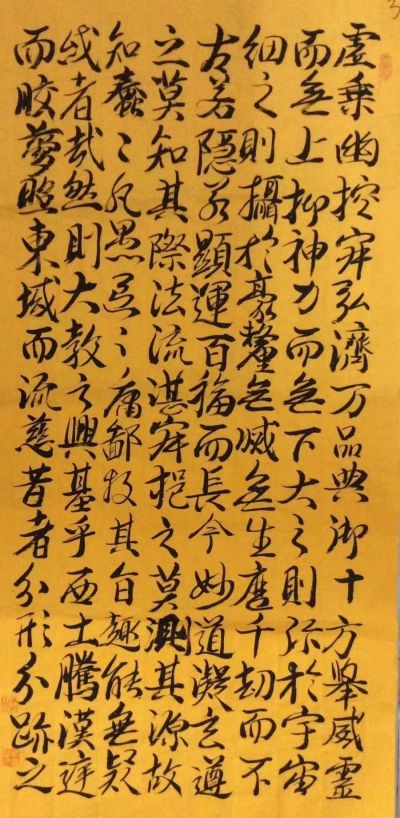 虛乘幽控寂弘濟万品典御十方舉威靈
而無上抑神力而無下大之則弥於宇宙
細之則攝於豪釐無滅無生歷千劫而不
古若隱若顯運百福而長今妙道凝玄遵
之莫知其際法流湛寂挹之莫測其源故
知蠢〻凡愚區〻庸鄙投其旨趣能無疑
或者哉然則大教之興基乎西土騰漢庭
而皎夢照東域而流慈昔者分形分跡之